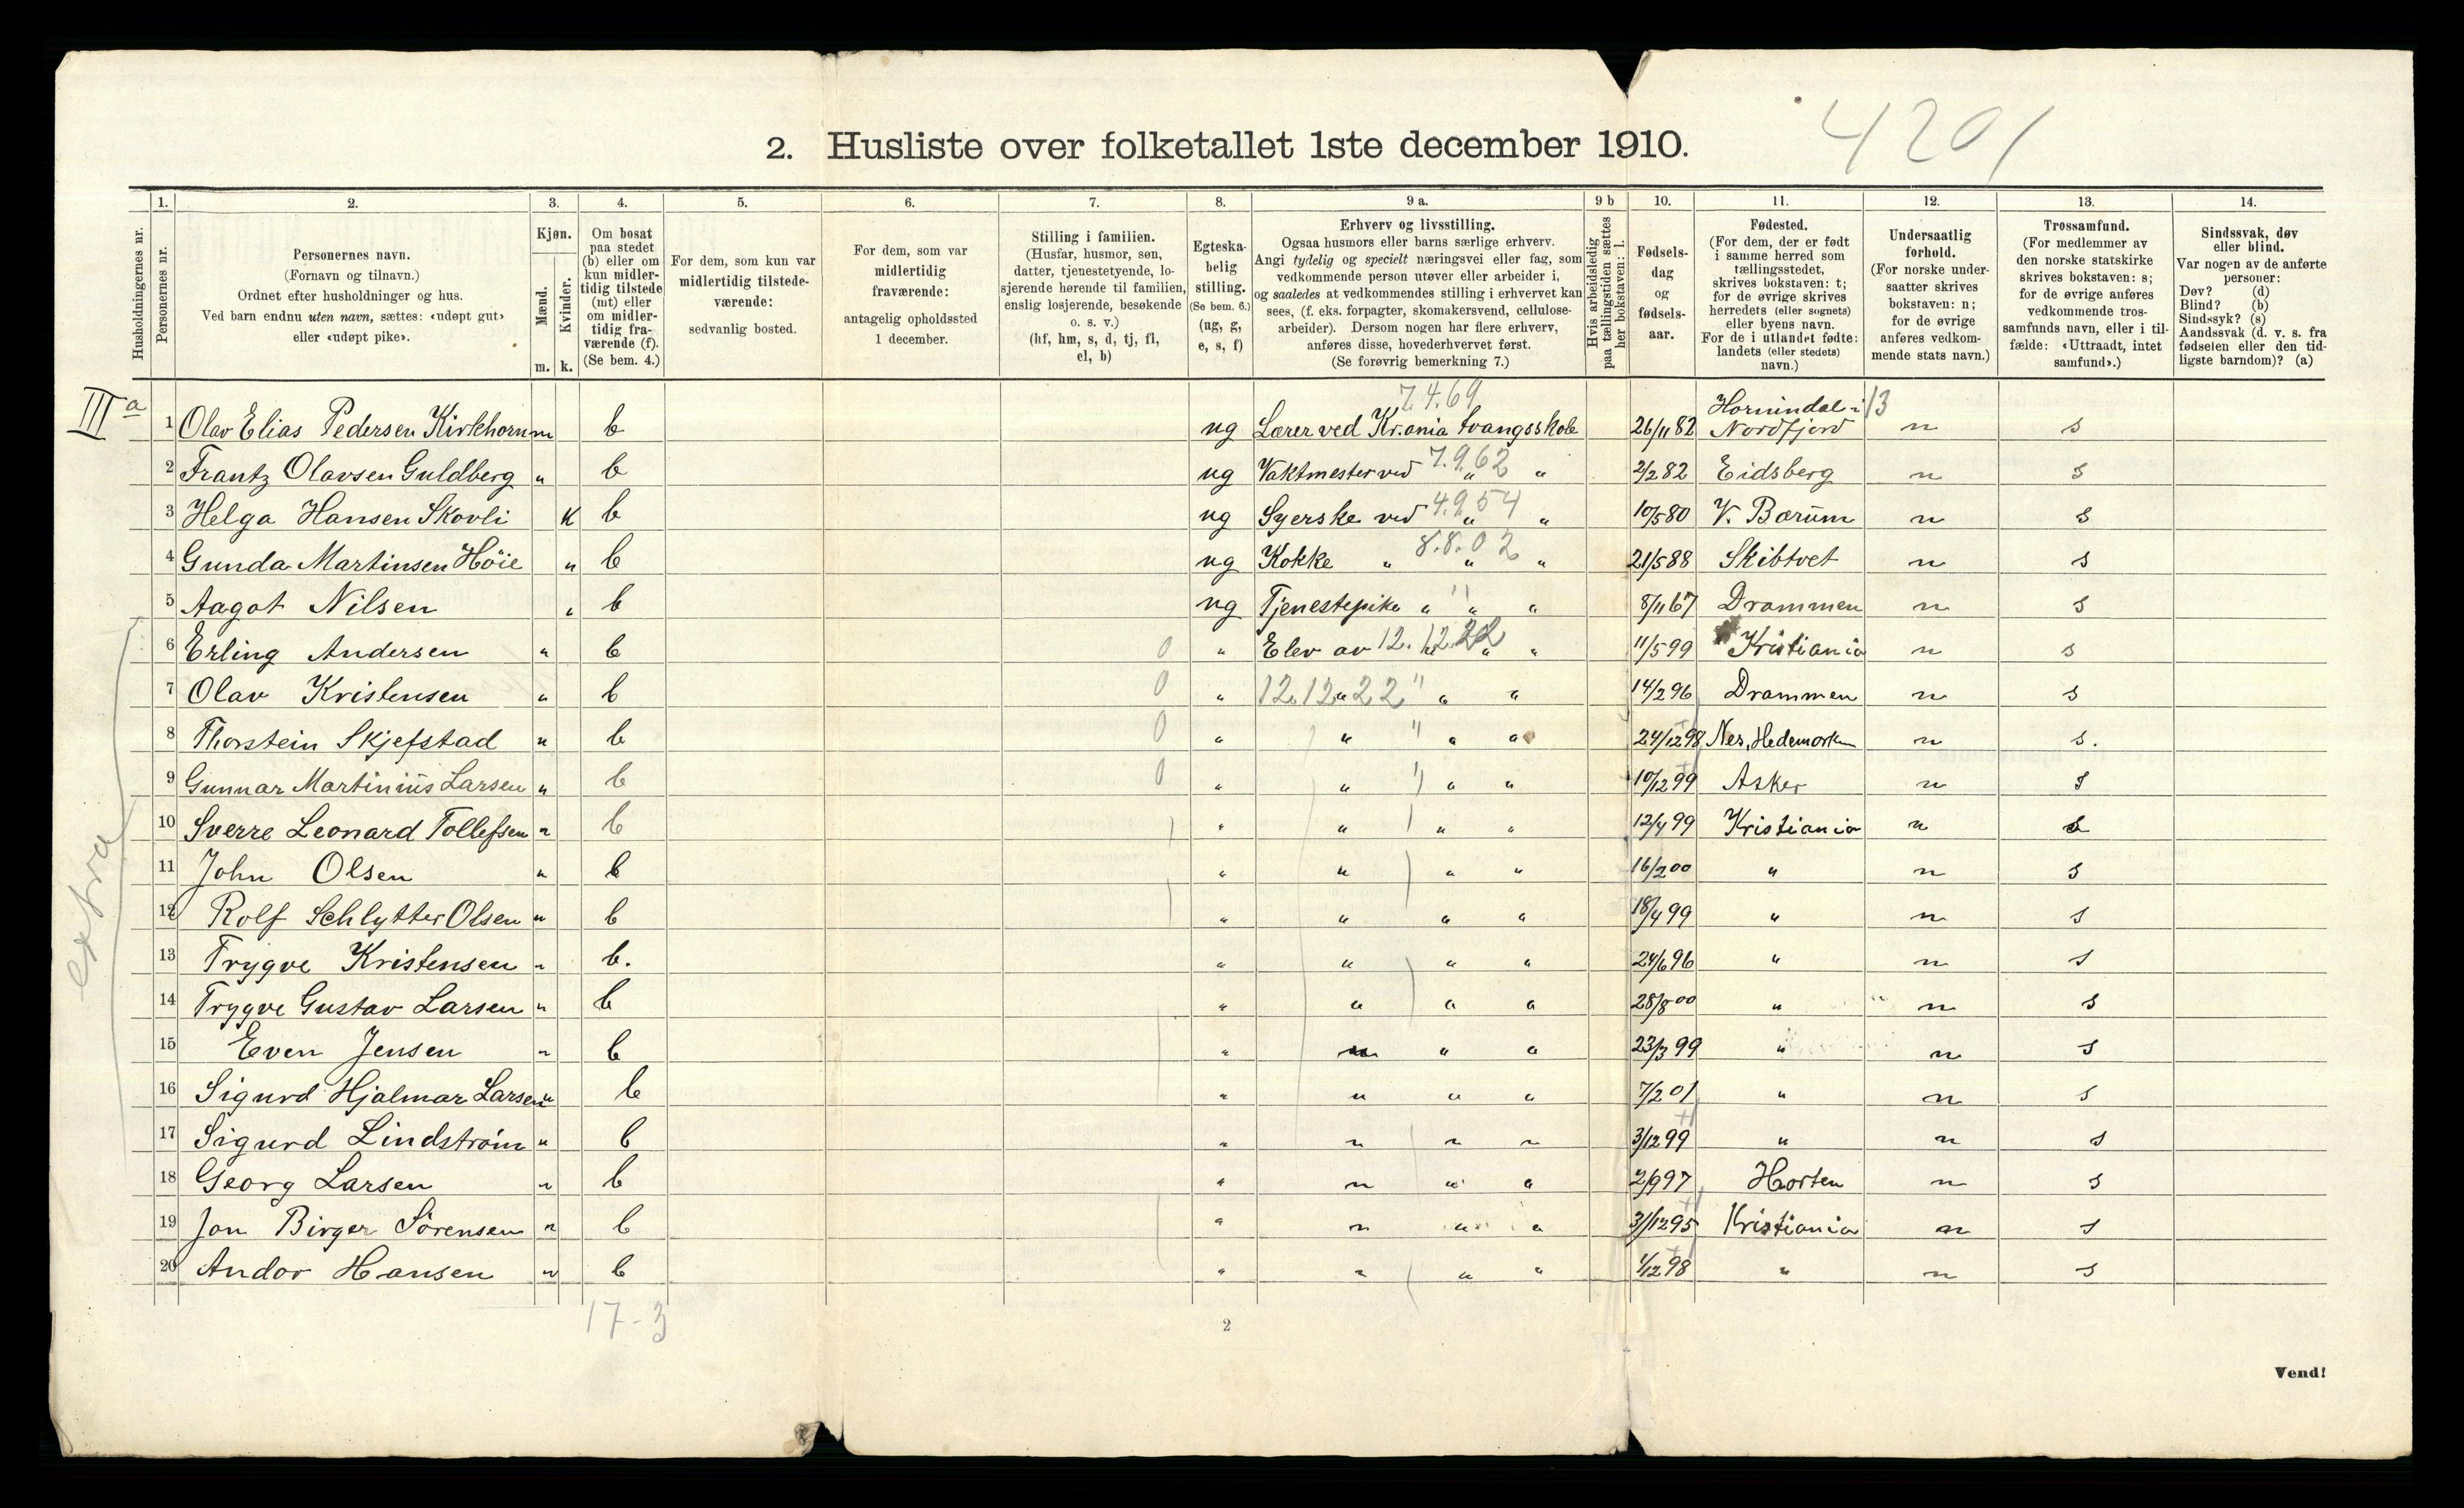 2. Husliste over folketallet 1ste december 1910.
4201
Husholdningernes nr.
1.
Personernes nr.
2.
Personernes navn.
(Fornavn og tilnavn.)
Ordnet efter husholdninger og hus.
Ved barn endnu uten navn, sættes: «udøpt gut»
eller «udøpt pike».
3.
Kjøn.
Mænd.
Kvinder.
m. k.
4.
Om bosat
paa stedet
(b) eller om
kun midler-
tidig tilstede
(mt) eller
om midler-
tidig fra-
værende (f).
(Se bem. 4.)
5.
For dem, som kun var
midlertidig tilstede-
værende:
sedvanlig bosted.
6.
For dem, som var
midlertidig
fraværende:
antagelig opholdssted
1 december.
7.
Stilling i familien.
(Husfar, husmor, søn,
datter, tjenestetyende, lo-
sjerende hørende til familien,
enslig losjerende, besøkende
o. s. v.)
(hf, hm, s, d, tj, fl,
el, b)
8.
Egteska-
belig
stilling.
(Se bem. 6.)
(ug, g,
e, s, f)
9 a.
Erhverv og livsstilling.
Ogsaa husmors eller barns særlige erhverv.
Angi tydelig og specielt næringsvei eller fag, som
vedkommende person utøver eller arbeider i,
og saaledes at vedkommendes stilling i erhvervet kan
sees, (f. eks. forpagter, skomakersvend, cellulose-
arbeider). Dersom nogen har flere erhverv,
anføres disse, hovederhvervet først.
(Se forøvrig bemerkning 7.)
9 b
Hvis arbeidsledig
paa tællingstiden sættes
her bokstaven: l.
10.
Fødsels-
dag
og
fødsels-
aar.
11.
Fødested.
(For dem, der er født
i samme herred som
tællingsstedet,
skrives bokstaven: t;
for de øvrige skrives
herredets (eller sognets)
eller byens navn.
For de i utlandet fødte:
landets (eller stedets)
navn.)
12.
Undersaatlig
forhold.
(For norske under-
saatter skrives
bokstaven: n;
for de øvrige
anføres vedkom-
mende stats navn.)
13.
Trossamfund.
(For medlemmer av
den norske statskirke
skrives bokstaven: s;
for de øvrige anføres
vedkommende tros-
samfunds navn, eller i til-
fælde: «Uttraadt, intet
samfund».)
14.
Sindssvak, døv
eller blind.
Var nogen av de anførte
personer:
Døv? (d)
Blind? (b)
Sindssyk? (s)
Aandssvak (d. v. s. fra
fødselen eller den tid-
ligste barndom)? (a)
III a
7.4.69 Hornindal i 13
1 Olav Elias Pedersen Kirkhorn m b ug Lærer ved Kr.ania tvangsskole 26/11 82 Nordfjord n s
2 Frantz Olavsen Guldberg " b ug Vaktmester ved 7.9.62 " " 2/2 82 Eidsberg n s
3 Helga Hansen Skovli K b ug Syerske ved 4.9.54 " " 10/5 80 V. Bærum n s
4 Gunda Martinsen Høie " b ug Kokke " 8.8.02 " " 21/5 88 Skibtvet n s
5 Aagot Nilsen " b ug Tjenestepike " " " 8/11 67 Drammen n s
6 Erling Andersen " b 0 " Elev av 12.12.22 " " 11/5 99 Kristiania n s
7 Olav Kristensen " b 0 " 12.12.22 " " " 14/2 96 Drammen n s
8 Thorstein Skjefstad " b 0 " " " " 24/12 98 Nes, Hedemarken n s.
9 Gunnar Martinius Larsen " b 0 " " " " 10/12 99 Asker n s
10 Sverre Leonard Tollefsen " b " " " " 12/4 99 Kristiania n s
11 John Olsen " b " " " " 16/2 00 " n s
12 Rolf Schlytter Olsen " b " " " " 18/4 99 " n s
13 Trygve Kristensen " b. " " " " 24/6 96 " n s
14 Trygve Gustav Larsen " b " " " " 28/8 00 " n s
15 Even Jensen " b " " " " 23/3 99 " n s
16 Sigurd Hjalmar Larsen " b " " " " 7/2 01 " n s
17 Sigurd Lindstrøm " b " " " " 3/12 99 " n s
18 Georg Larsen " b " " " " 2/9 97 Horten n s
19 Jon Birger Sørensen " b " " " " 31/12 95 Kristiania n s
20 Andor Hansen " b " " " " 1/12 98 " n s
extra
17-3
2
Vend!